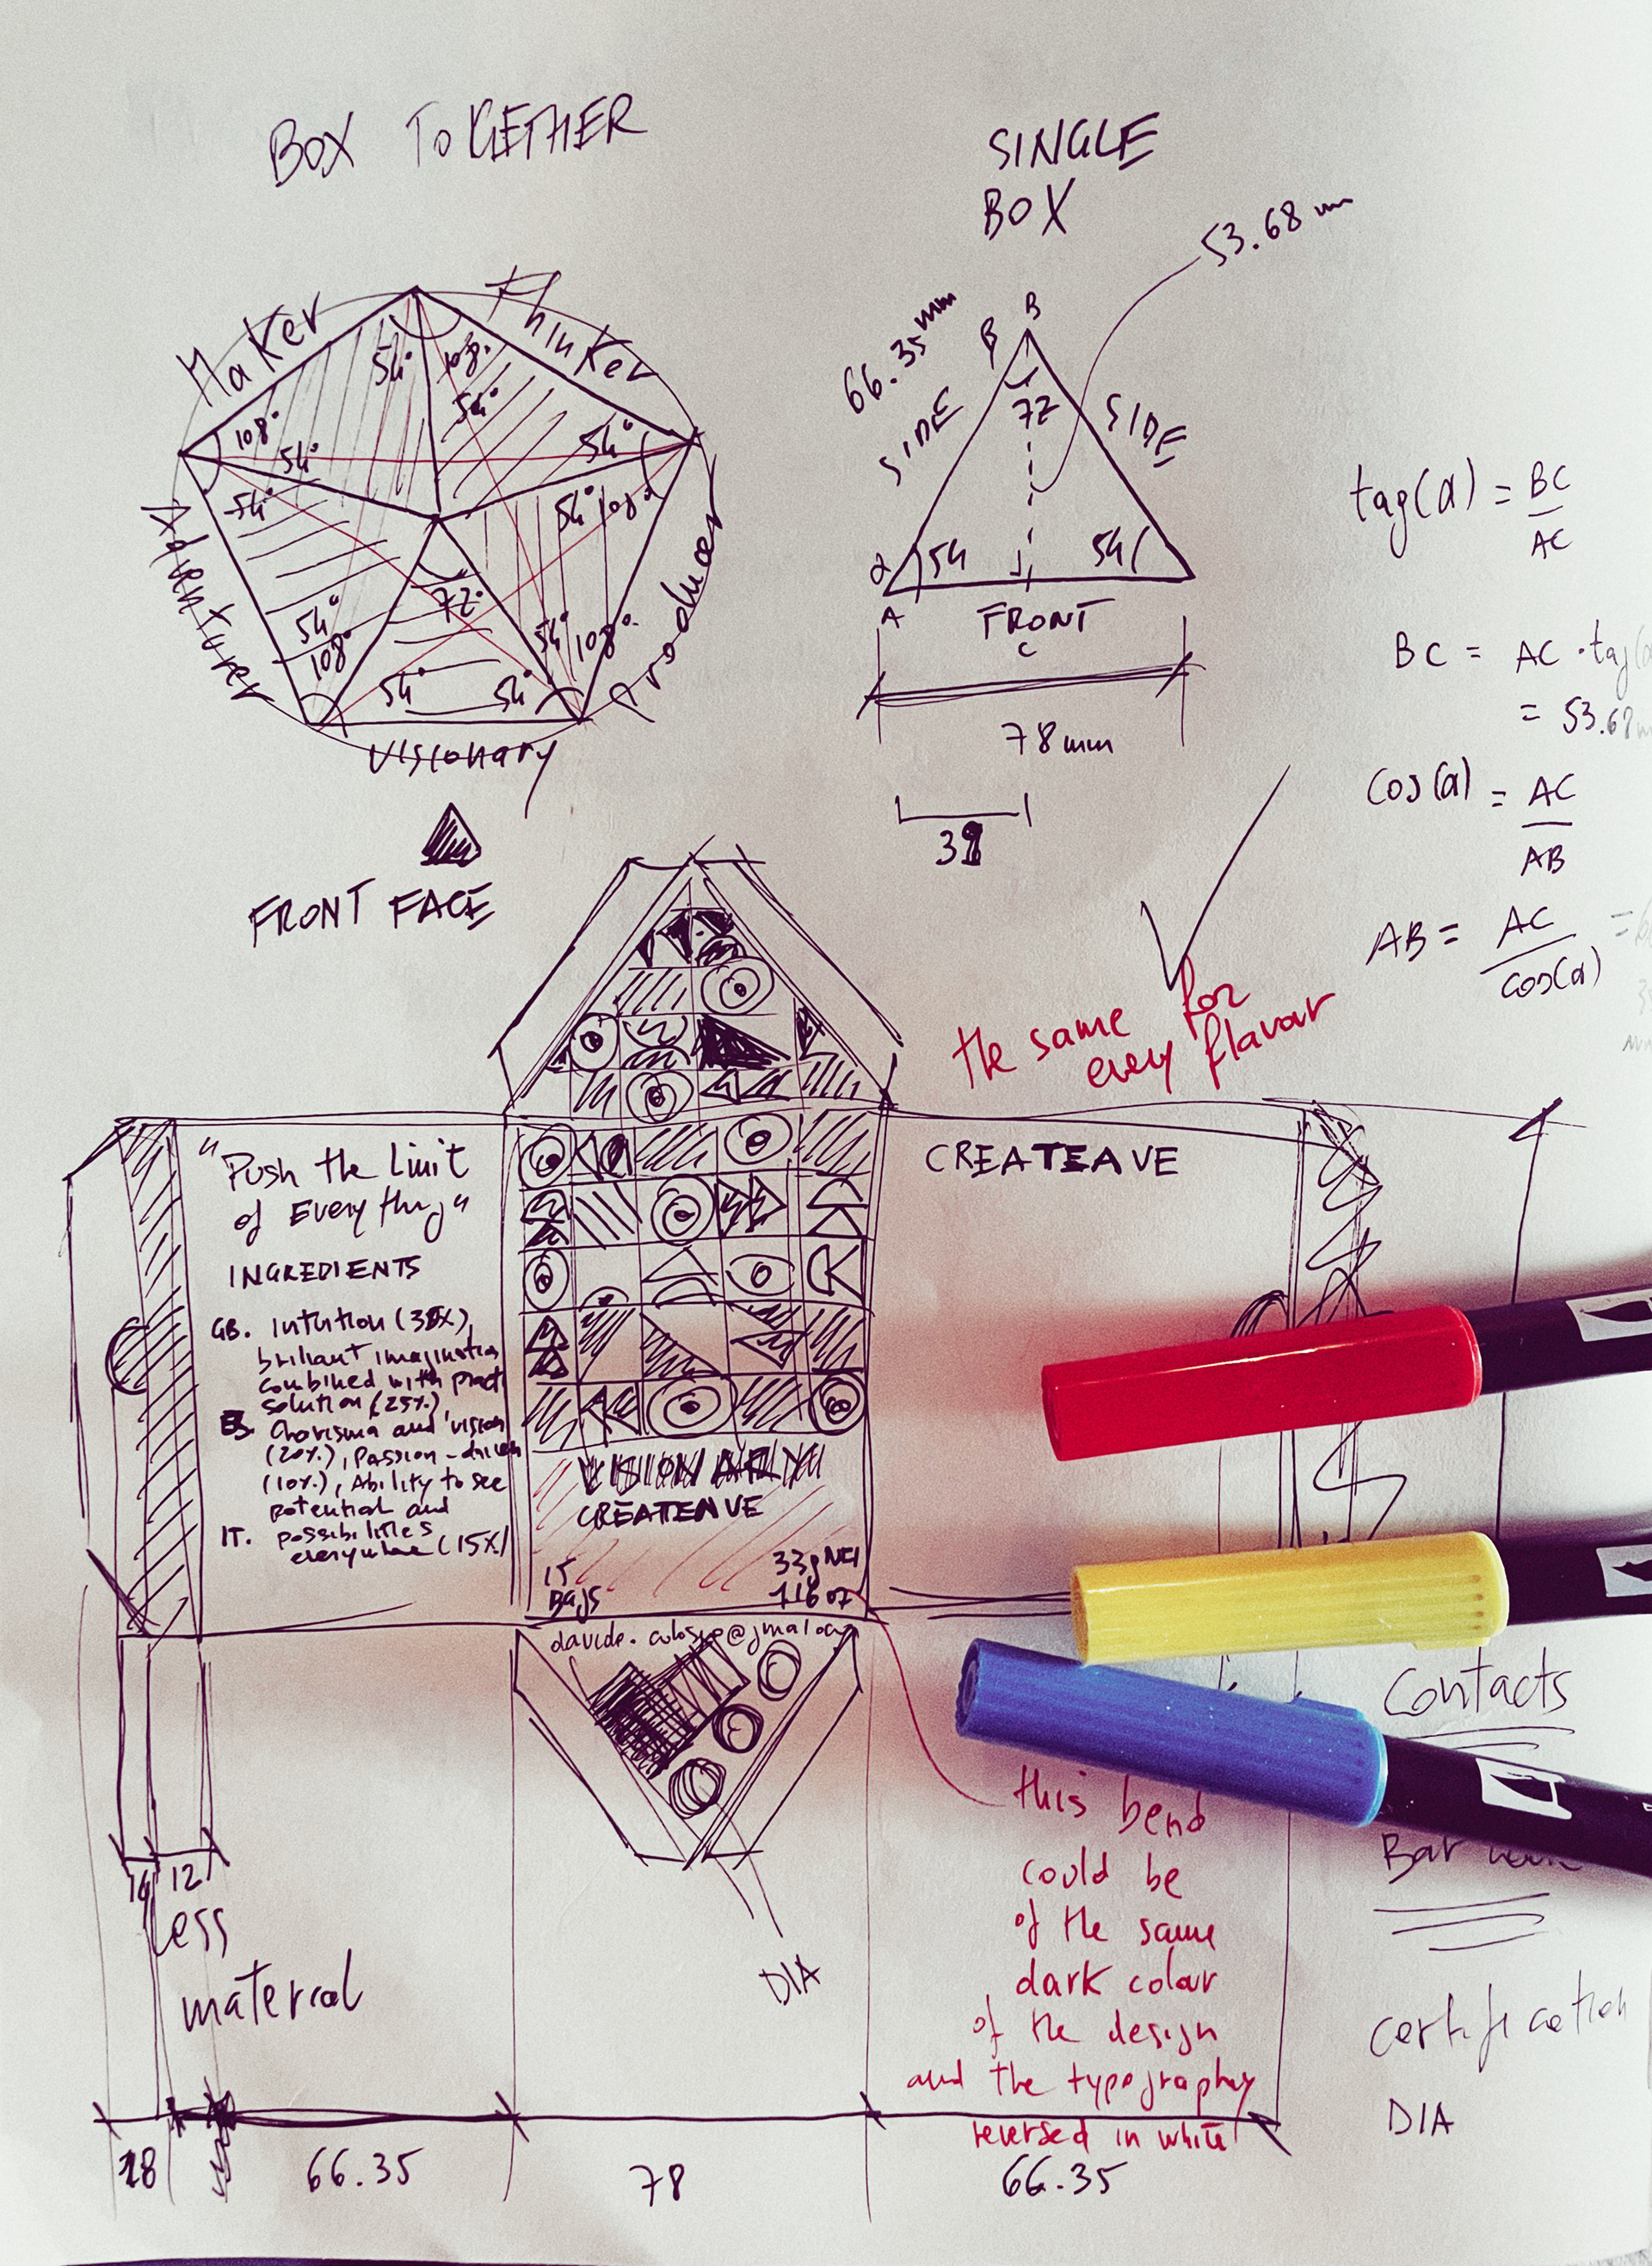 BOX TOGETHER
SINGLE
BOX
53.68 mm
Maker
Thinker
Adventurer
Producer
Visionary
54°
108°
54°
108°
54°
54°
54°
54°
108°
54°
108°
72°
54°
108°
54°
54°
66.35 mm
SIDE
SIDE
β
B
72
α
54
54
A
FRONT
C
78 mm
39
tag(α) = BC
AC
BC = AC · tag(α
= 53.68 m
cos(α) = AC
AB
AB = AC =
cos(α)
FRONT FACE
the same for
every flavour
"Push the Limit
of Everything"
INGREDIENTS
GB. Intuition (30%),
brilliant imagination
combined with pract
solution (25%)
ES. Charisma and vision
(20%), Passion-driven
(10%), Ability to see
potential and
IT. possibilities
everywhere (15%)
CREATEAVE
VISIONARY
CREATEAVE
15
Bags
33g NET
1.16 oz
DIA
12
less
material
this bend
could be
of the same
dark colour
of the design
and the typography
reversed in white
Contacts
Bar
certification
DIA
18
66.35
78
66.35